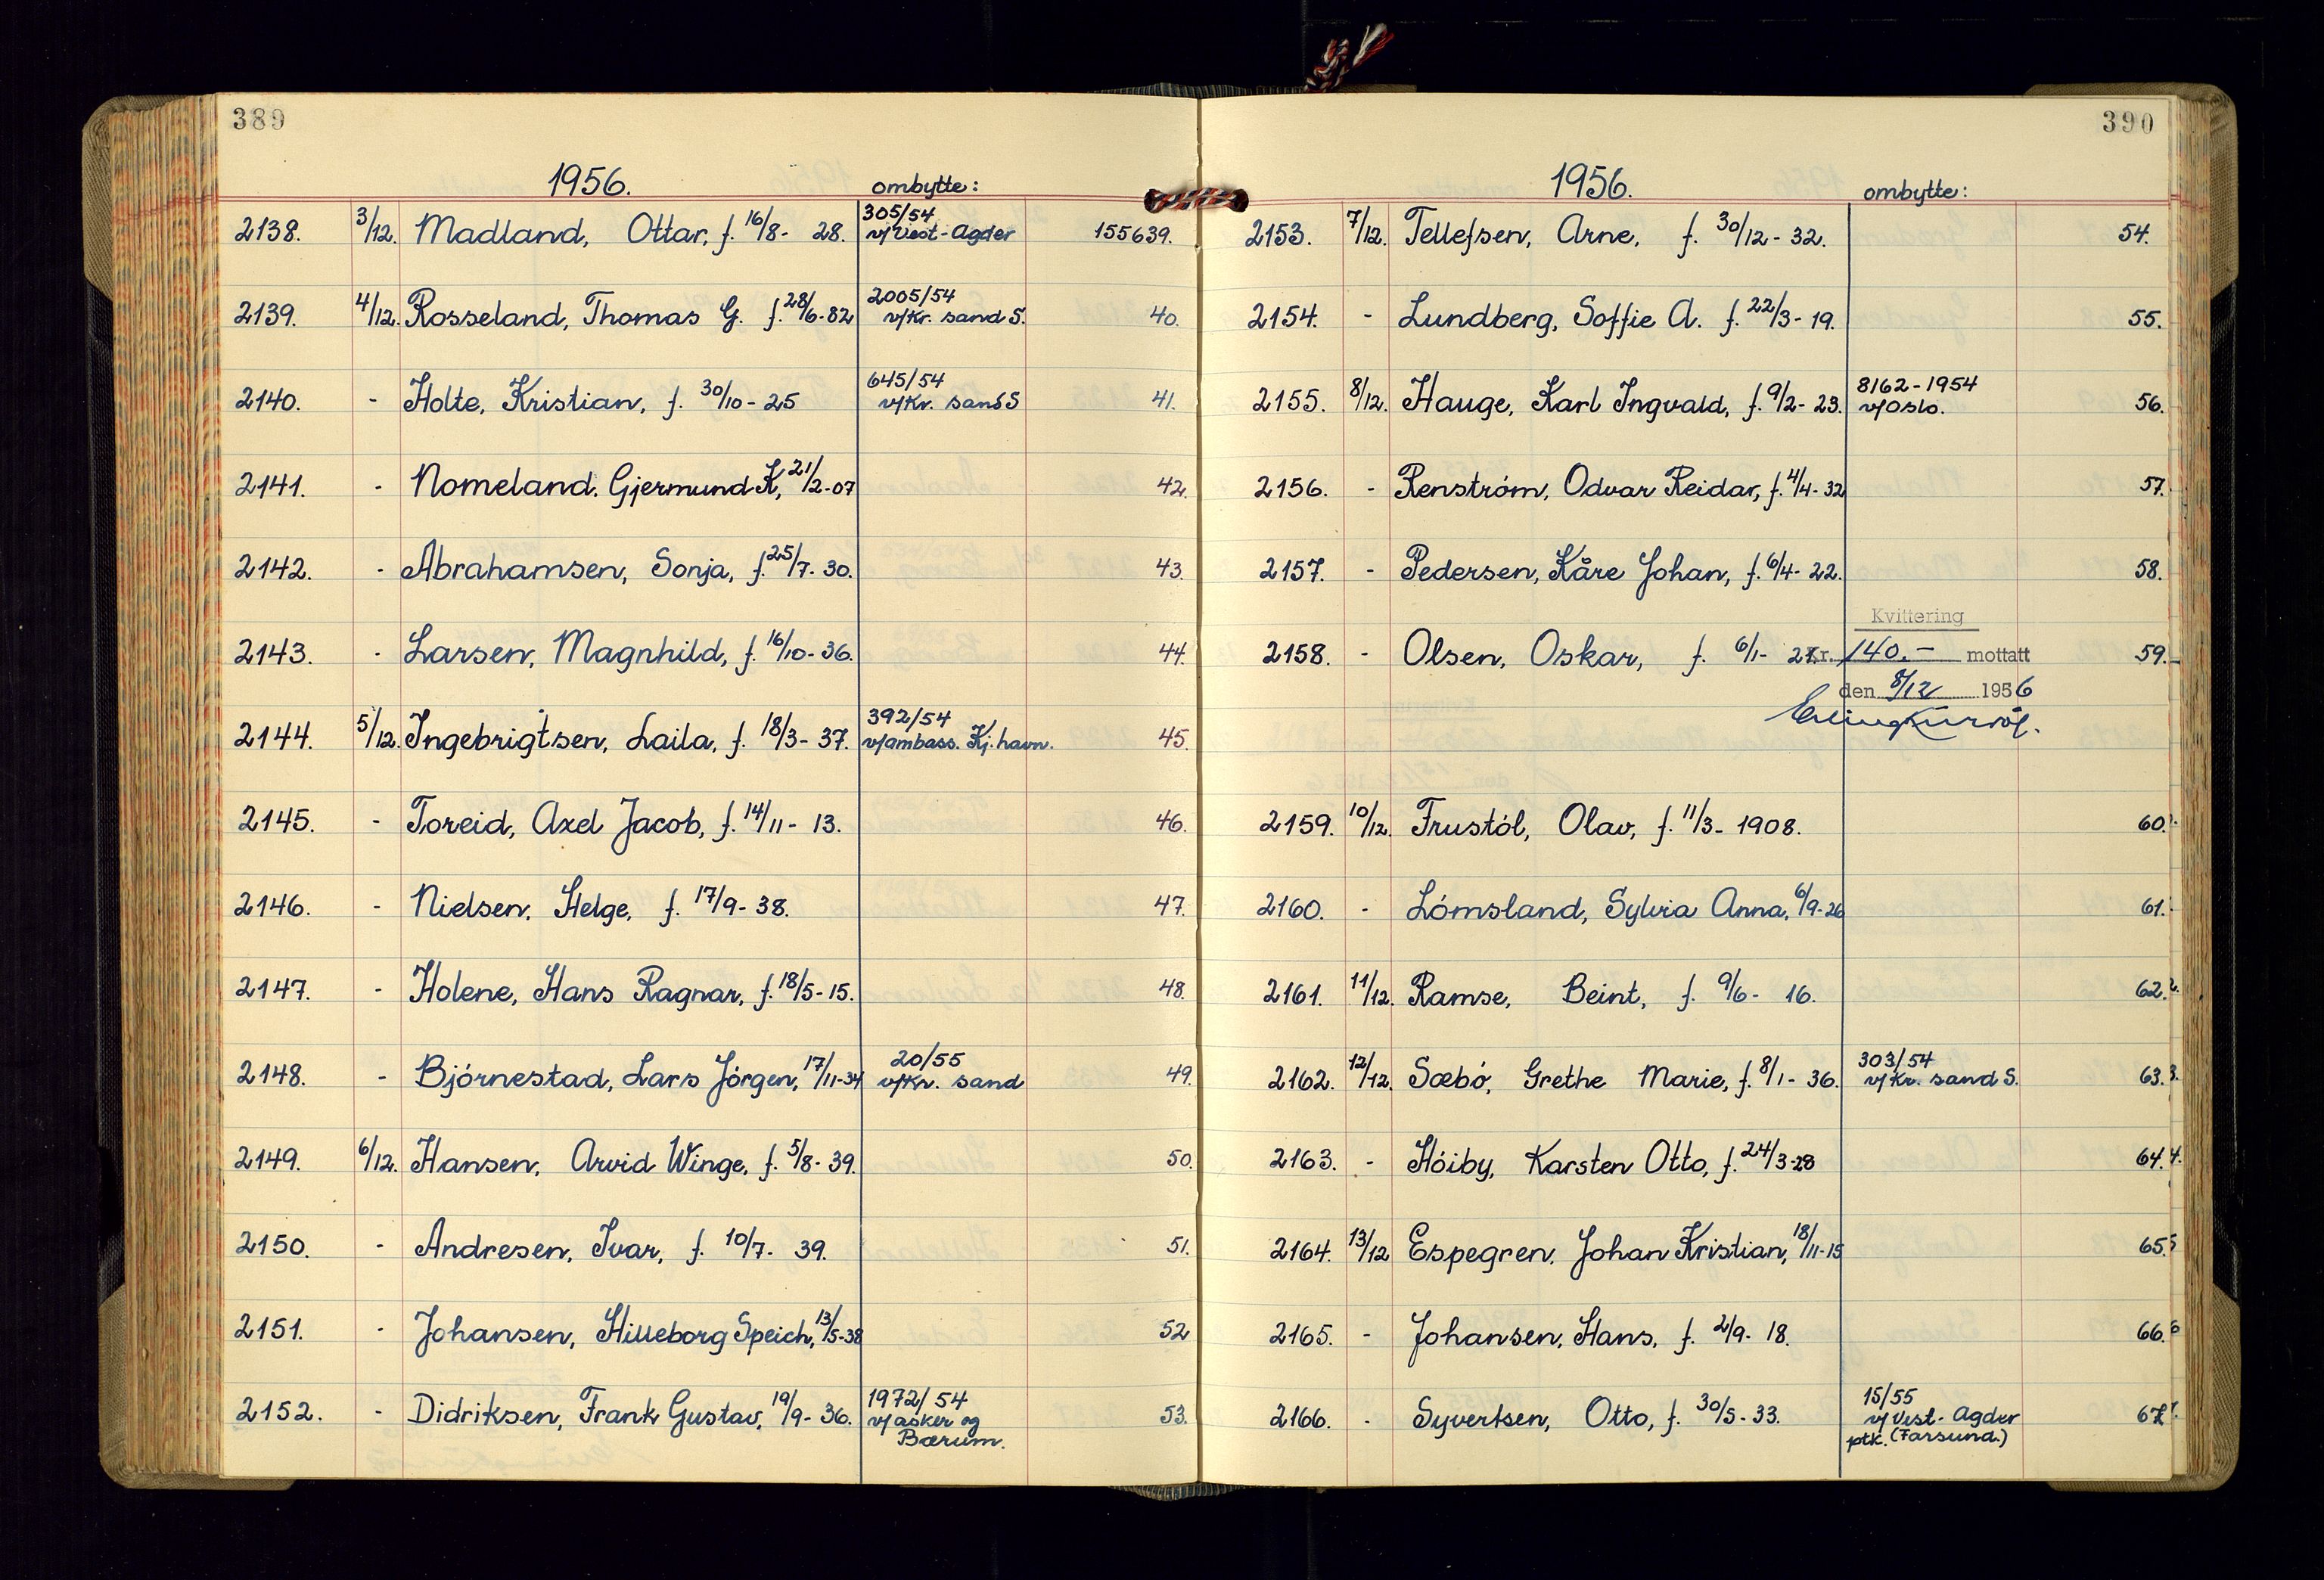 389
1956. ombytte:
2138. 3/12. Madland, Ottar, f. 16/8- 28. 305/54 v/Vest-Agder 155639.
2139. 4/12. Rosseland, Thomas G. f. 28/6-82 2005/54 v/Kr. sand S. 40.
2140. - Holte, Kristian, f. 30/10-25 645/54 v/Kr. sand S 41.
2141. - Nomeland. Gjermund K, 21/2-07 42.
2142. - Abrahamsen, Sonja, f. 25/7-30. 43.
2143. - Larsen, Magnhild, f. 16/10-36. 44.
2144. 5/12. Ingebrigtsen, Laila, f. 18/3-37. 392/54 v/ambass. Kj.havn. 45.
2145. - Toreid, Axel Jacob, f. 14/11- 13. 46.
2146. - Nielsen, Helge, f. 17/9-38. 47.
2147. - Holene, Hans Ragnar, f. 18/5-15. 48.
2148. - Bjórnestad, Lars Jórgen, 17/11-34 20/55 v/Kr. sand 49.
2149. 6/12. Hansen, Arvid Winge, f. 5/8-39. 50.
2150. - Andresen, Ivar, f. 10/7- 39. 51.
2151. - Johansen, Hilleborg Speich, 13/5-38 52
2152. - Didriksen, Frank Gustav, 19/9-36. 1972/54 v/asker og Bærum. 53.
390
1956. ombytte:
2153. 7/12. Tellefsen, Arne, f. 30/12-32. 54.
2154. - Lundberg, Soffie A. f. 22/3-19. 55.
2155. 8/12. Hauge, Karl Ingvald, f. 9/2-23. 8162-1954 v/Oslo. 56.
2156. - Renstróm, Odvar Reidar, f. 4/4-32 57.
2157. - Pedersen, Kåre Johan, f. 6/4-22. 58.
Kvittering
2158. - Olsen, Oskar, f. 6/1- 27. kr. 140.- mottatt 59.
den 8/12 1956
2159. 10/12. Frustól, Olav, f. 11/3-1908. 60.
2160. - Lómsland, Sylvia Anna, 6/9-26 61.
2161. 11/12. Ramse, Beint, f. 9/6- 16. 62.
2162. 12/12. Sæbó, Grethe Marie, f. 8/1-36. 303/54 v/Kr. sand S. 63.
2163. - Hóiby, Karsten Otto, f. 24/3-28 64.
2164. 13/12 Espegren, Johan Kristian, 18/11-15 65.
2165. - Johansen, Hans, f. 2/9-18. 66.
2166. - Syvertsen, Otto, f. 30/5-33. 15/55 v/Vest-Agder ptk. (Farsund.) 67